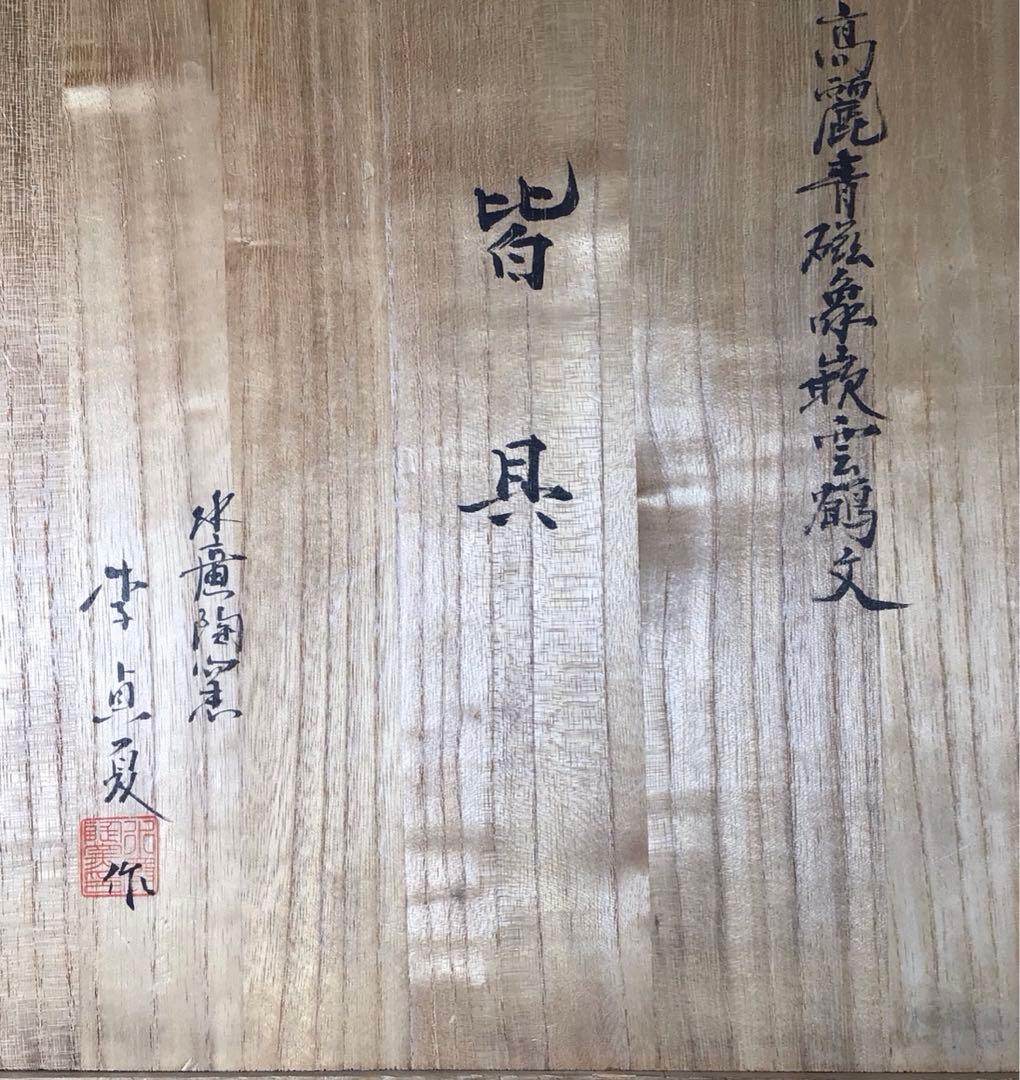 高麗青磁象嵌雲鶴文
皆具
水廣陶窯
李貞夏
作